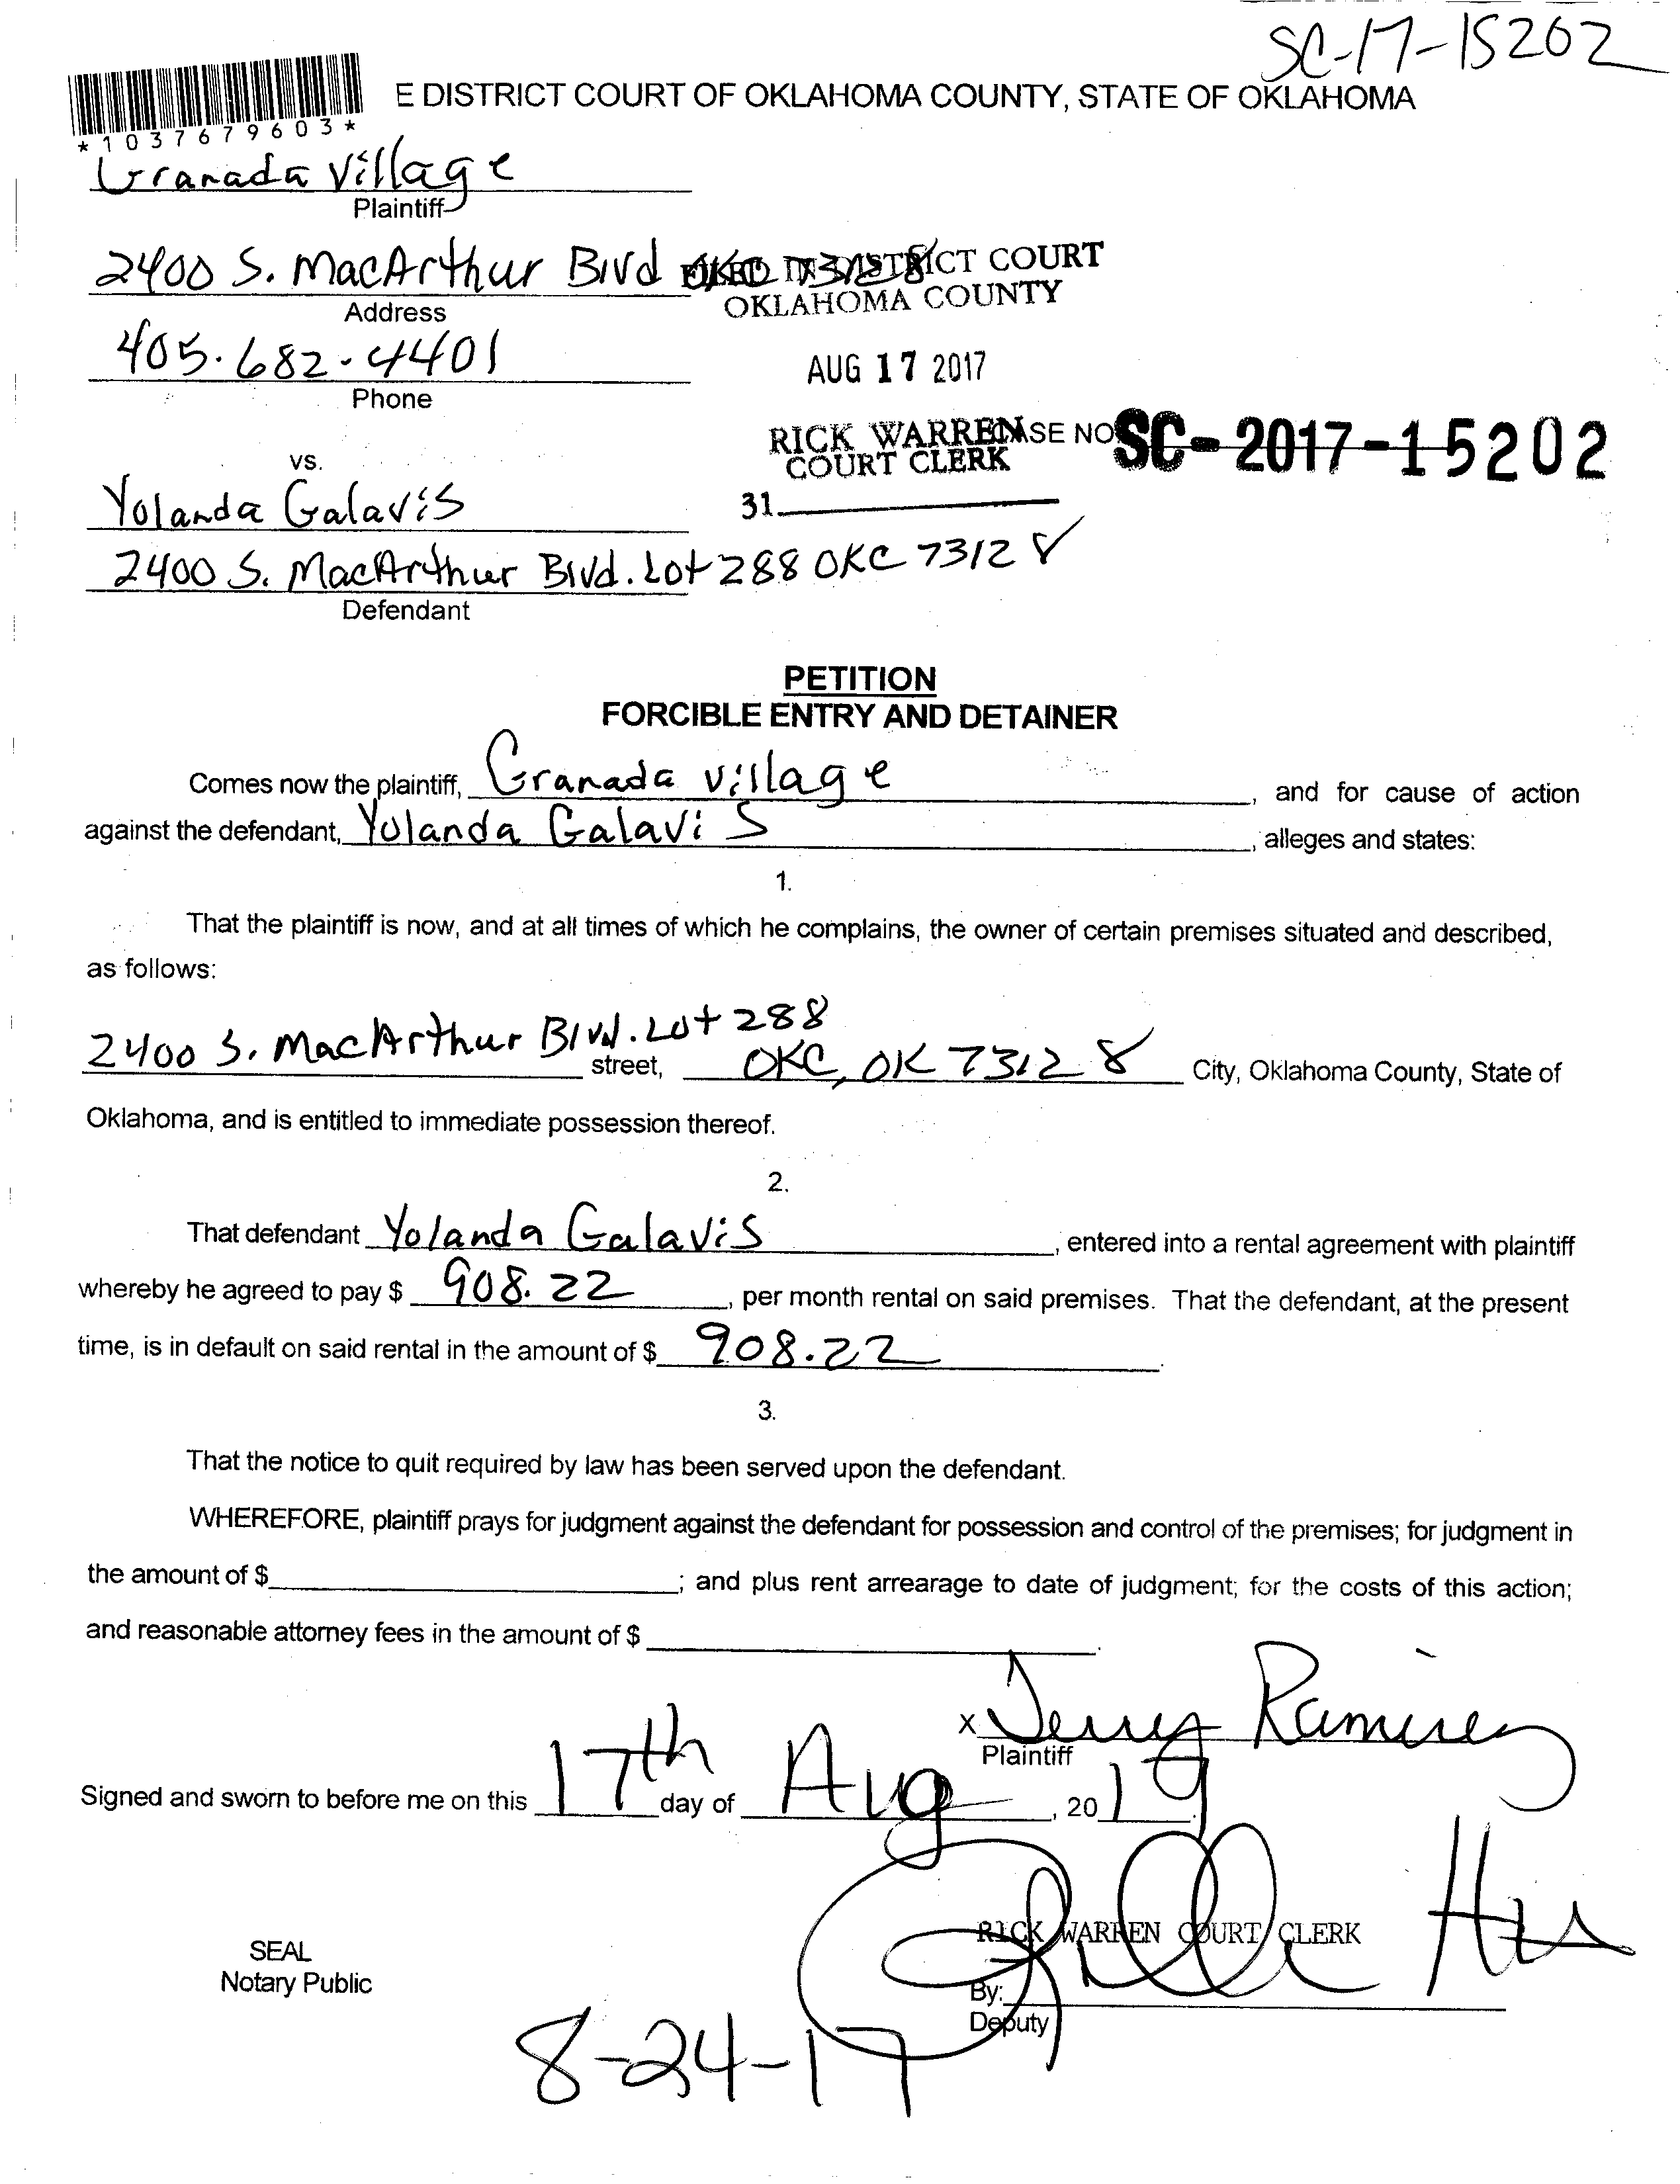 SC-17-15202
E DISTRICT COURT OF OKLAHOMA COUNTY, STATE OF OKLAHOMA
*1037679603*
Granada Village
Plaintiff
2400 S. MacArthur Blvd OKC 73128
FILED IN DISTRICT COURT
OKLAHOMA COUNTY
Address
405.682.4401
Phone
AUG 17 2017
RICK WARREN
COURT CLERK
CASE NO SC-2017-15202
31
vs.
Yolanda Galavis
2400 S. MacArthur Blvd. Lot 288 OKC 73128
Defendant
PETITION
FORCIBLE ENTRY AND DETAINER
Comes now the plaintiff, Granada Village, and for cause of action
against the defendant, Yolanda Galavis, alleges and states:
1.
That the plaintiff is now, and at all times of which he complains, the owner of certain premises situated and described,
as follows:
2400 S. MacArthur Blvd. Lot 288 street, OKC, OK 73128 City, Oklahoma County, State of
Oklahoma, and is entitled to immediate possession thereof.
2.
That defendant Yolanda Galavis, entered into a rental agreement with plaintiff
whereby he agreed to pay $ 908.22, per month rental on said premises. That the defendant, at the present
time, is in default on said rental in the amount of $ 908.22.
3.
That the notice to quit required by law has been served upon the defendant.
WHEREFORE, plaintiff prays for judgment against the defendant for possession and control of the premises; for judgment in
the amount of $ ; and plus rent arrearage to date of judgment; for the costs of this action;
and reasonable attorney fees in the amount of $ .
x Jerry Ramirez
Plaintiff
Signed and sworn to before me on this 17th day of Aug, 20
RICK WARREN COURT CLERK
SEAL
Notary Public
By:
Deputy
8-24-17